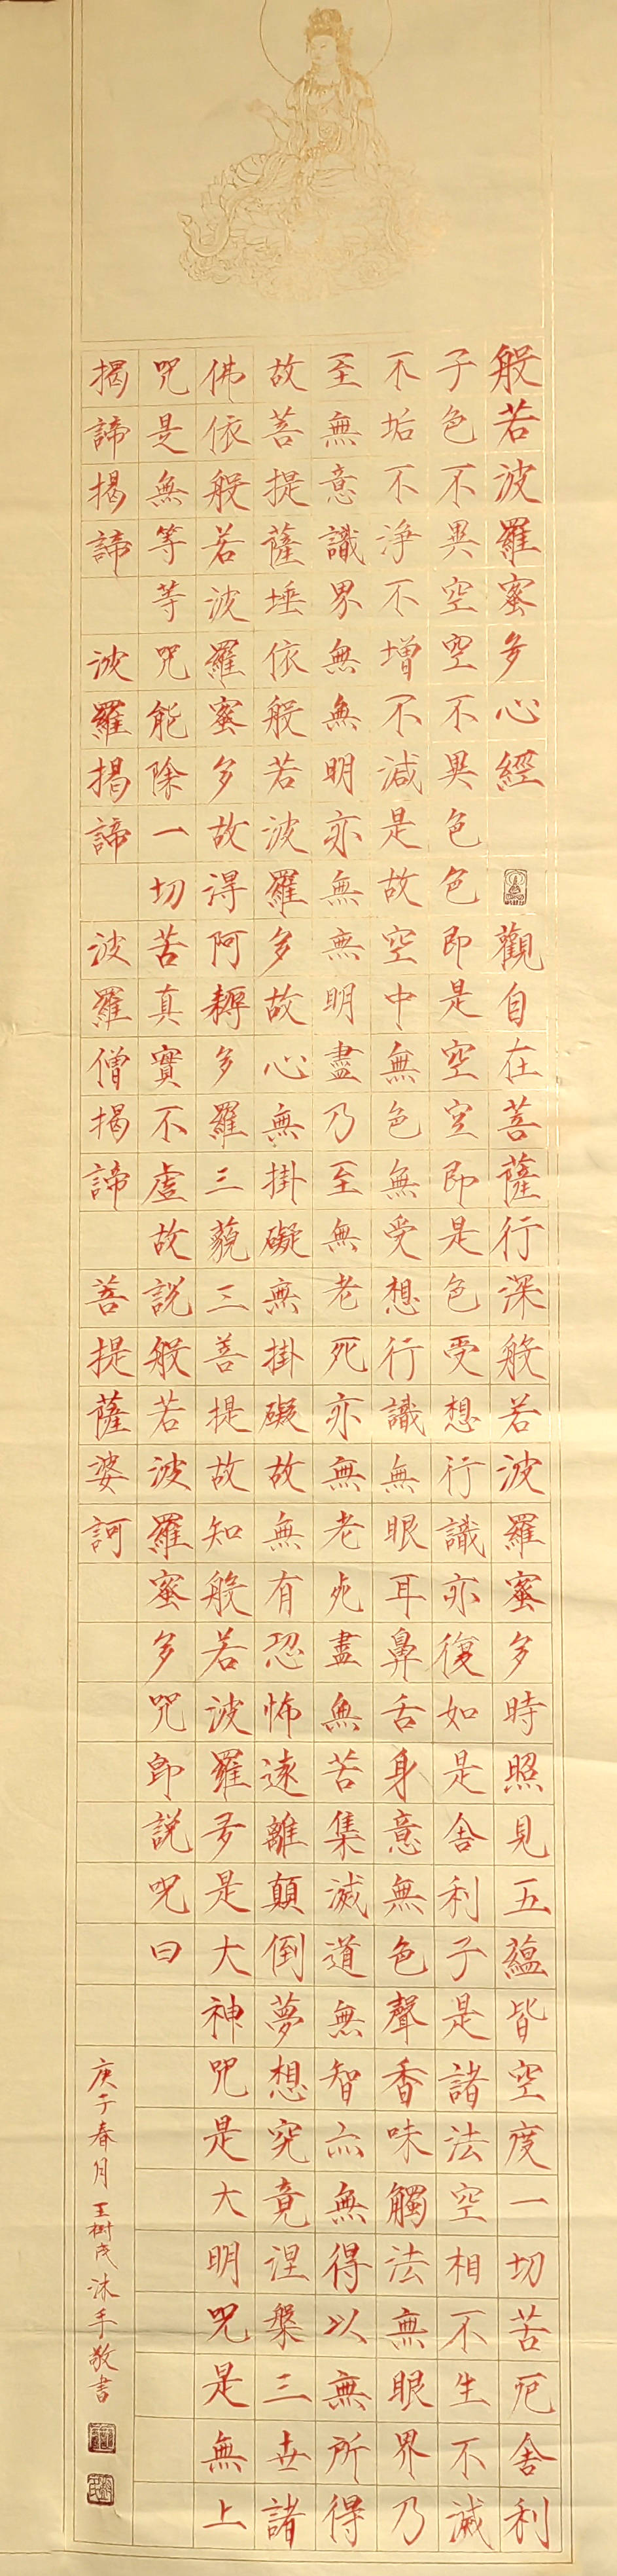 般若波羅蜜多心經 觀自在菩薩行深般若波羅蜜多時照見五蘊皆空度一切苦厄舍利
子色不異空空不異色色即是空空即是色受想行識亦復如是舍利子是諸法空相不生不滅
不垢不淨不增不減是故空中無色無受想行識無眼耳鼻舌身意無色聲香味觸法無眼界乃
至無意識界無無明亦無無明盡乃至無老死亦無老死盡無苦集滅道無智亦無得以無所得
故菩提薩埵依般若波羅多故心無掛礙無掛礙故無有恐怖遠離顛倒夢想究竟涅槃三世諸
佛依般若波羅蜜多故得阿耨多羅三藐三菩提故知般若波羅多是大神咒是大明咒是無上
咒是無等等咒能除一切苦真實不虛故說般若波羅蜜多咒即說咒曰
揭諦揭諦 波羅揭諦 波羅僧揭諦 菩提薩婆訶
庚子春月 王樹 沐手敬書